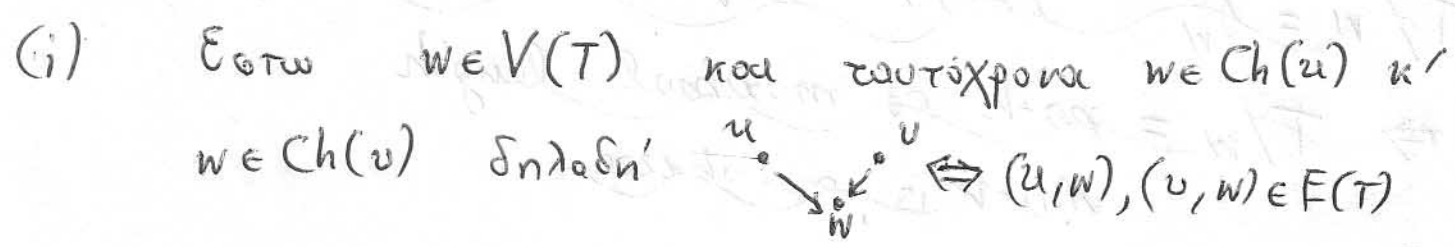 (i) Εστω w ∈ V(T) και ταυτόχρονα w ∈ Ch(u) κ'
w ∈ Ch(v) δηλαδή u v w ⇔ (u,w), (v,w) ∈ E(T)